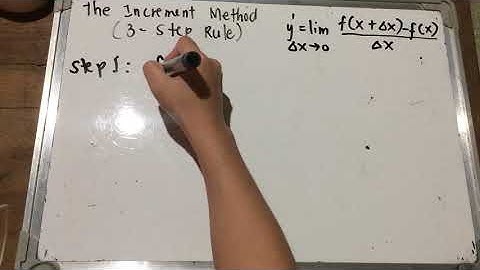 The Increment Method
(3- Step Rule)
y' = lim f(x + Δx) - f(x)
Δx→0 Δx
step 1: